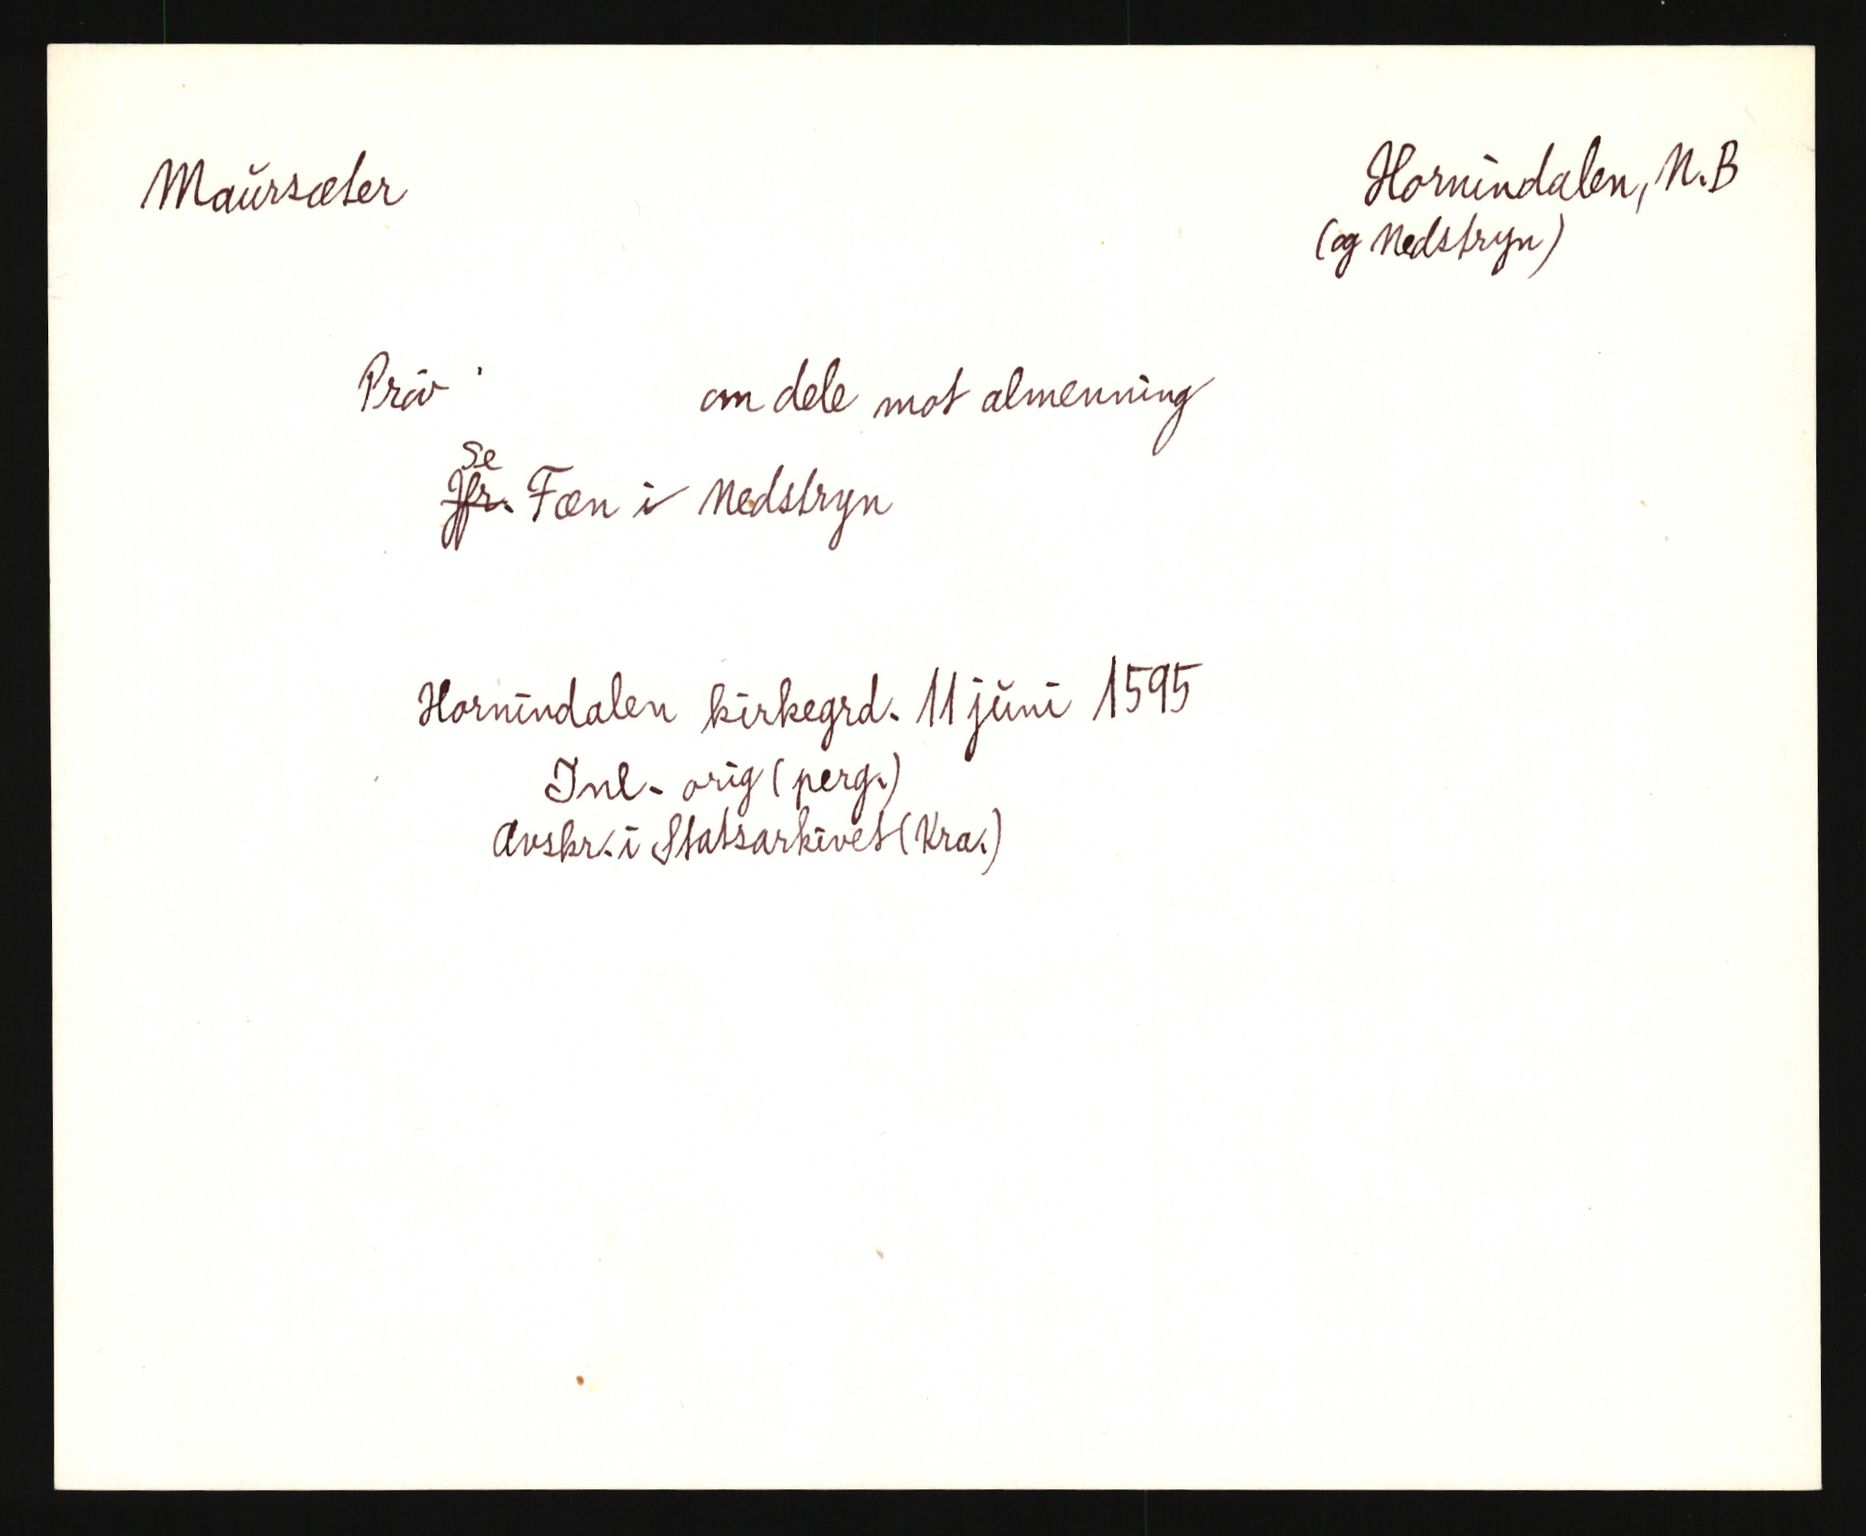 Maursæter
Hornindalen, N.B
(og Nedstryn)
Prov om dele mot almenning
se
Jfr. Fæn i Nedstryn
Hornindalen kirkegrd. 11 juni 1595
Inl. orig (perg.)
Avskr. i Statsarkivet (Kra.)